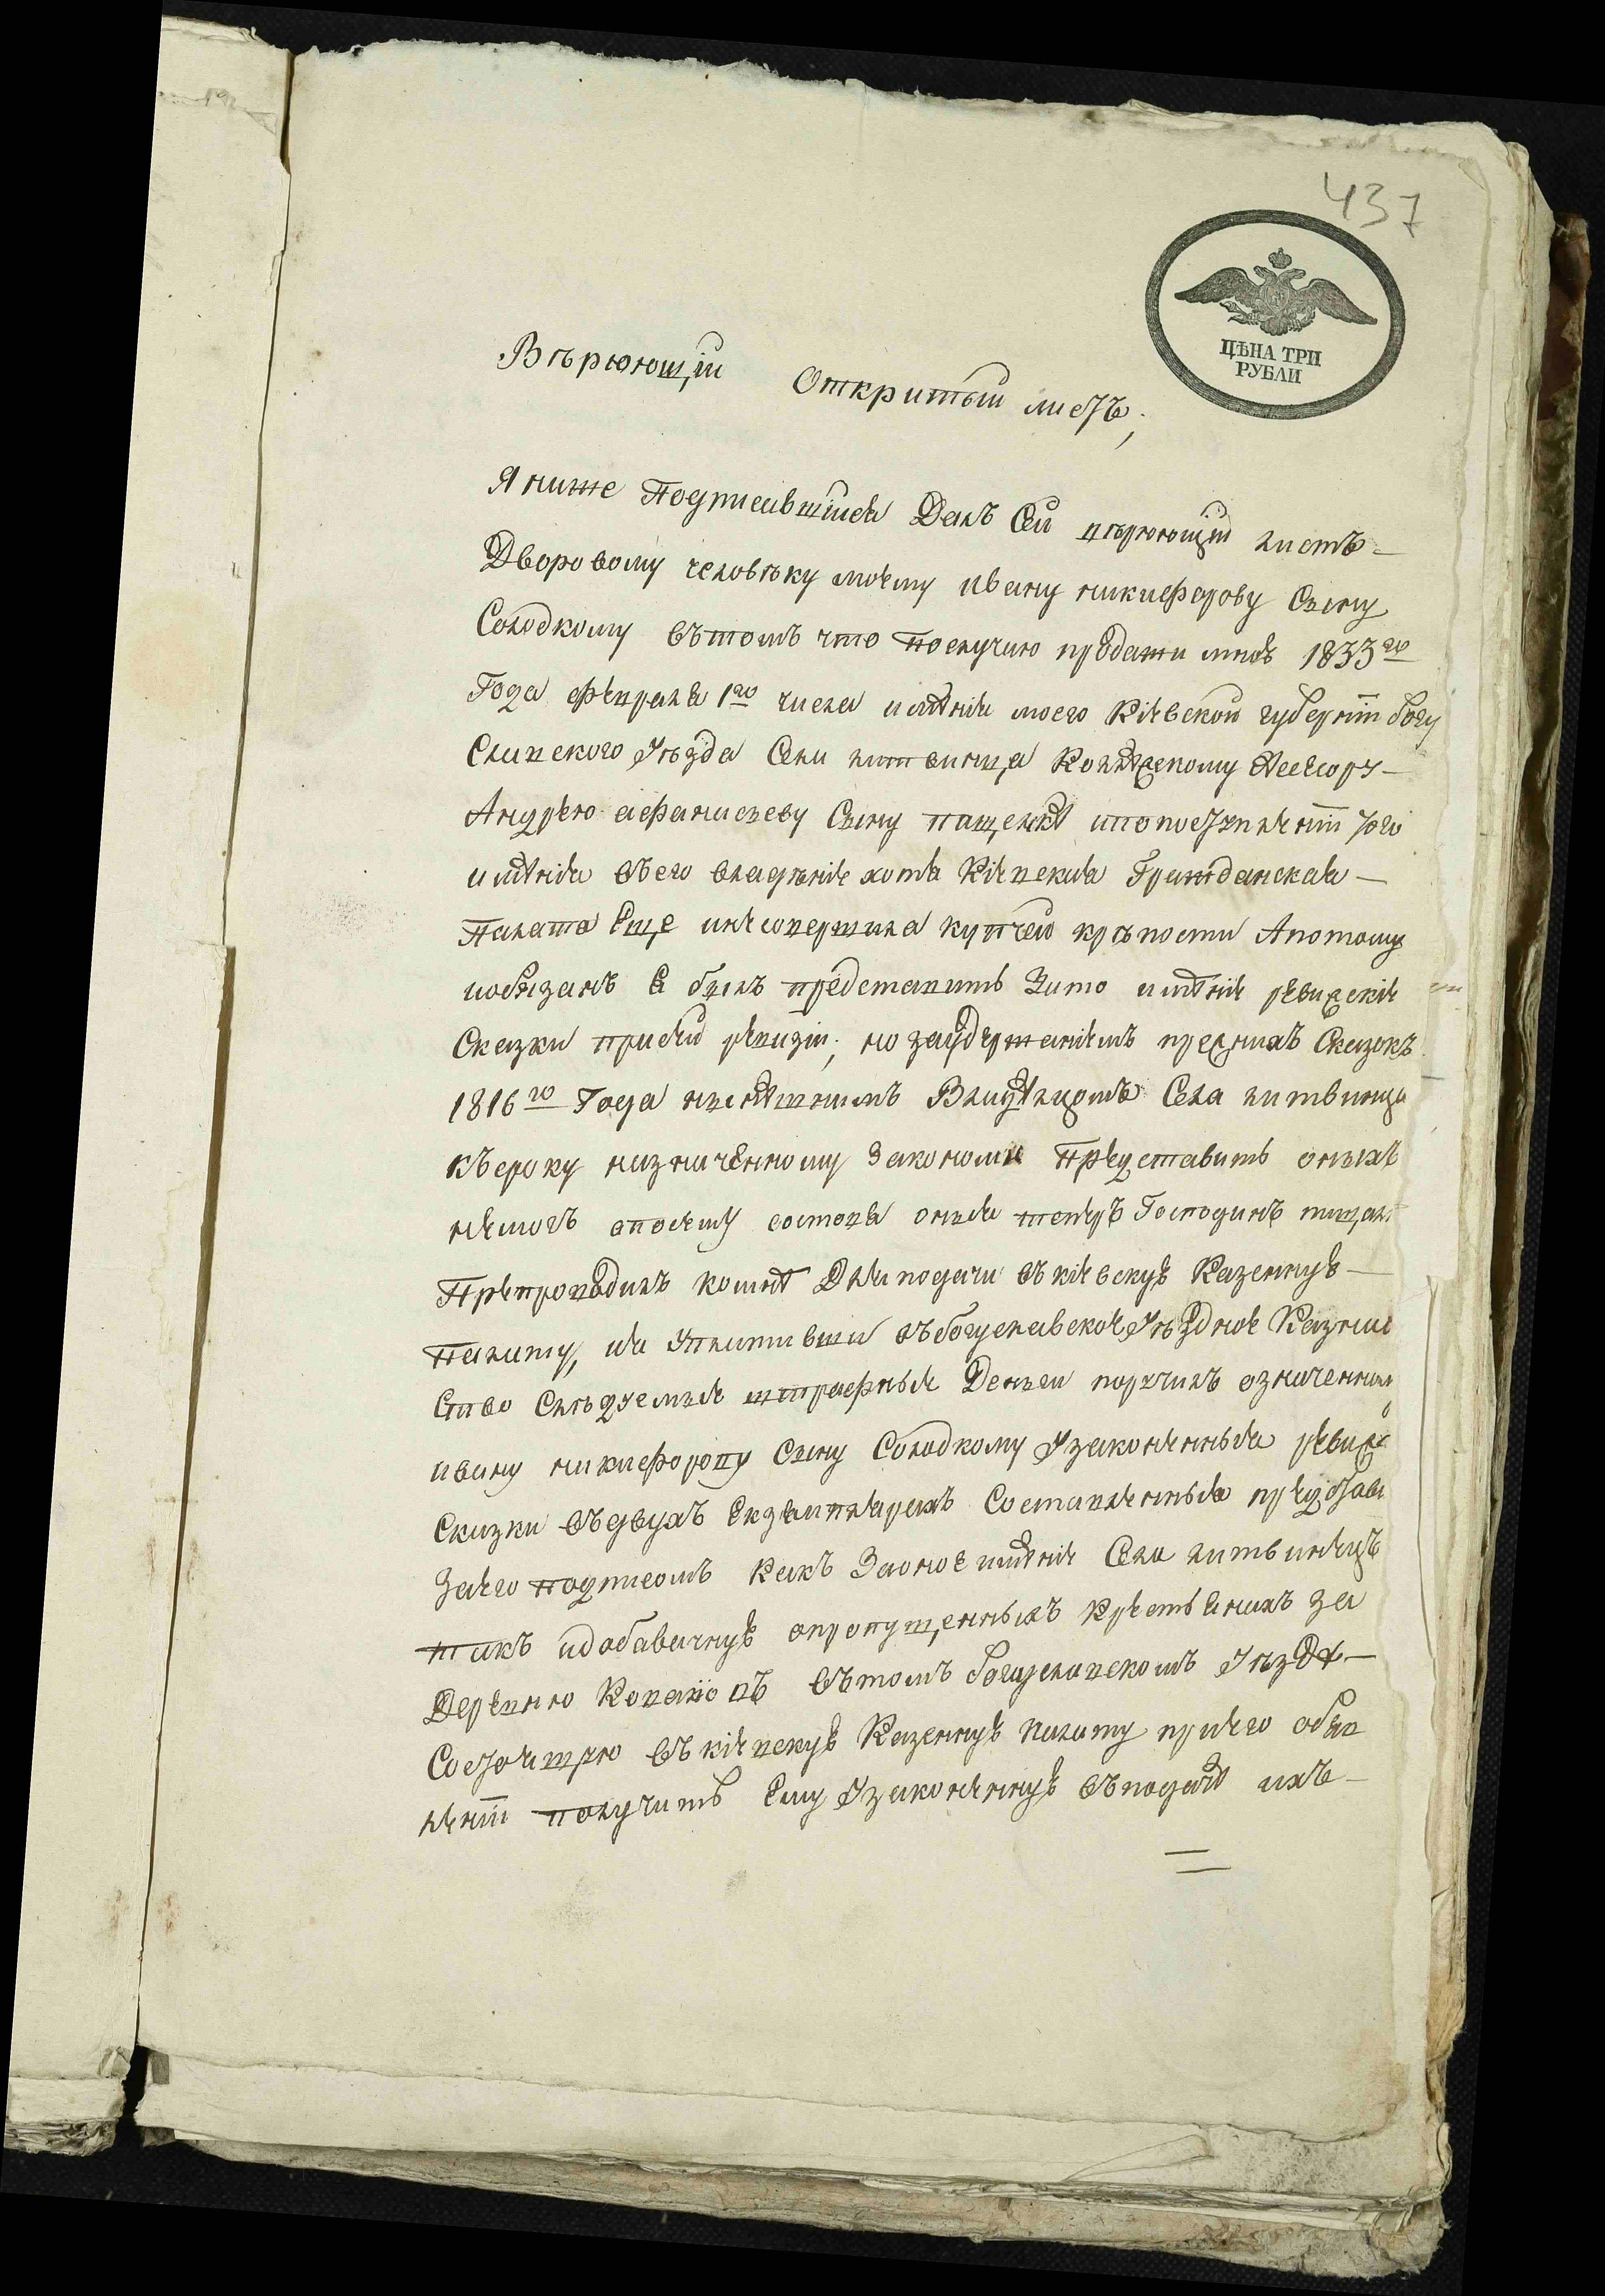 437
ЦѢНА ТРИ
РУБЛИ
Вѣрующій Откритый листъ,
Я ниже Подписавшійся Далъ Сей вѣрующій листъ
Дворовому человѣку моему ивану никифорову Сыну
Солодкому въ томъ что по случию продажи мною 1833го
Года февраля 1го числа имѣнія моего Кіевской губерніи Богу
Славского Уѣзда Села литвинца Коллѣжскому Ассесору
Андрею афанасьеву Сыну пащенкѣ и по поступленіи того
имѣнія въ его владѣніе хотя Кіевская Гражданская
Палата Еще и не совершила купчей крѣпости А потому
и обязанъ я былъ представить За то имѣніе ревизскіе
Сказки при сей ревизіи, но за удержаніемъ прежнихъ Сказокъ
1816го Года нынѣшнимъ Владѣлцомъ Села литвинца
къ сроку назначенному Закономъ Представить оныхъ
не могъ а поелику оныя теперъ Господинъ пащен
Препроводилъ ко мнѣ Для подачи въ кіевскую Казенную
палату, и я Уплативши въ богуславское Уѣздное Казначе
Ство Слѣдуемыя штрафныя Деньги поручилъ означенному
ивану никифорову Сыну Солодкому Узаконенныя ревизс
Сказки въ двухъ Екземплярахъ Составленныя представи
За его подписомъ какъ За оное имѣніе Села литвинецъ
такъ и добавочную о пропущенныхъ крестьянахъ за
Деревню въ томъ богуславскомъ Уѣздѣ
Состоящую въ кіевскую Казенную палату при чего объяв
леніи получить Ему Узаконенную въ подачѣ ихъ